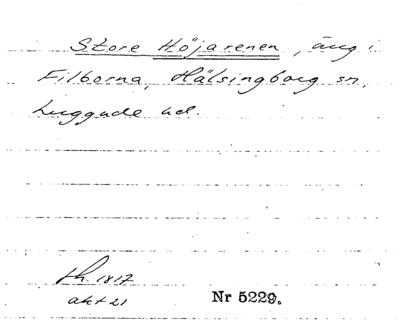 Store Höjarenen, äng i
Filborna, Hälsingborg sn,
Luggude hd.
sh. 1817
akt 21
Nr 5229.